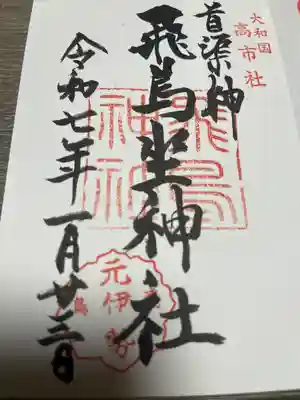 大和国
高市社
首渠神
飛鳥坐神社
令和七年一月廿三日
元伊勢